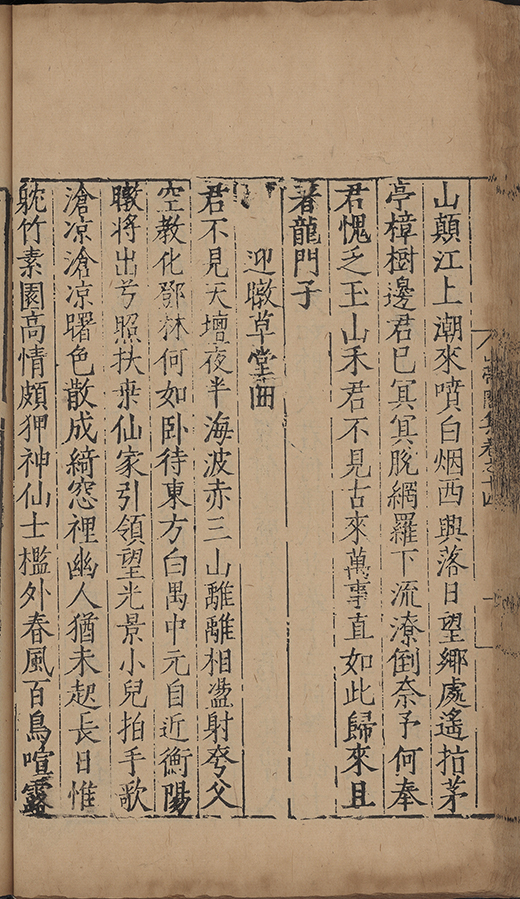 山顛江上潮來噴白烟西興落日望鄉處遙指茅
亭樟樹邊君已冥冥脫網羅下流潦倒奈予何奉
君愧乏玉山禾君不見古來萬事直如此歸來且
著龍門子
迎暾草堂曲
君不見天壇夜半海波赤三山離離相盪射夸父
空教化鄧林何如卧待東方白禺中元自近衡陽
暾將出兮照扶桒仙家引領望光景小兒拍手歌
滄凉滄凉曙色散成綺窓裡幽人猶未起長日惟
躭竹素園高情頗狎神仙士檻外春風百鳥喧露